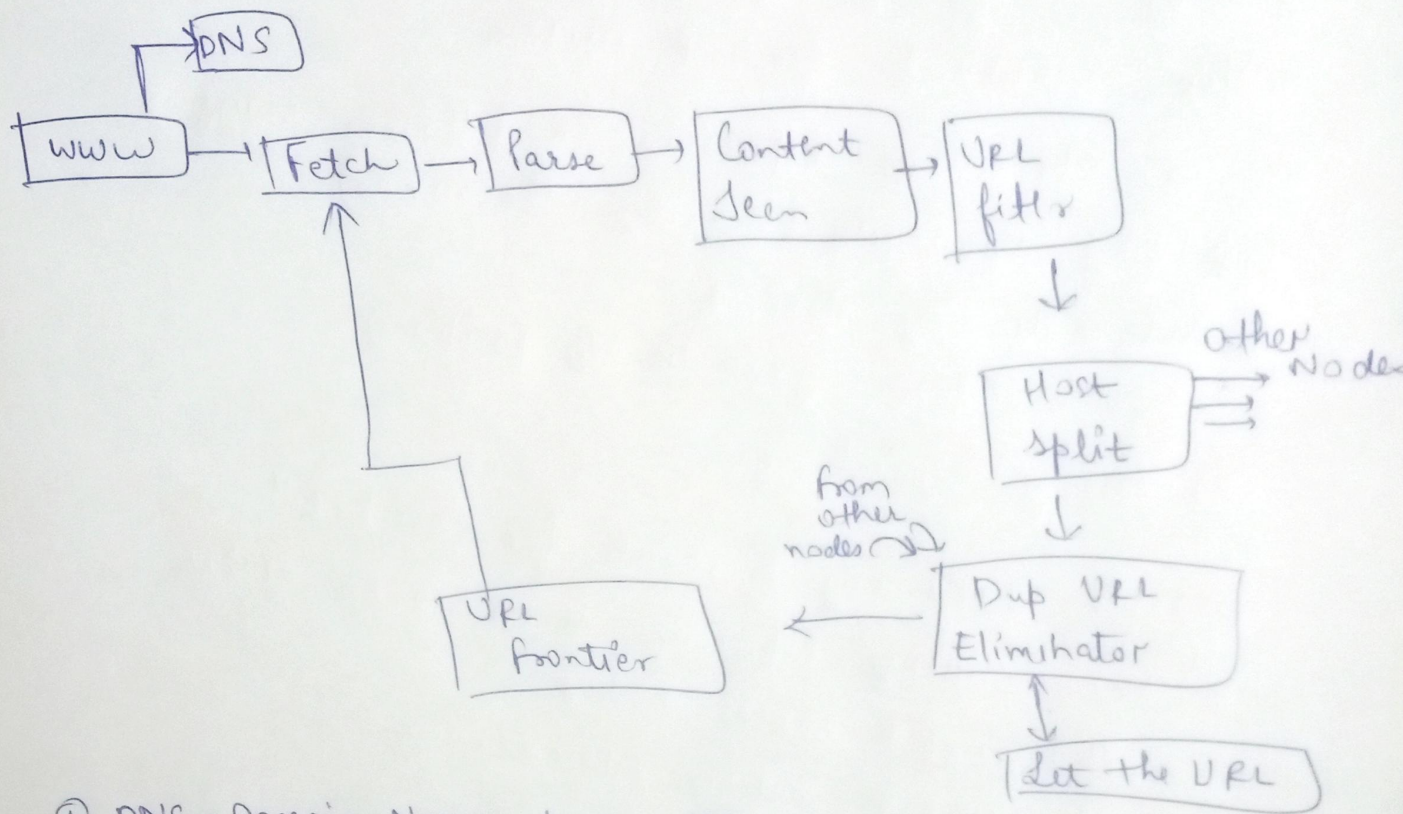 DNS
WWW
Fetch
Parse
Content
Seen
URL
fitlr
other
Node
Host
split
from
other
nodes
Dup URL
Eliminator
URL
frontier
Let the URL
① DNS Domain